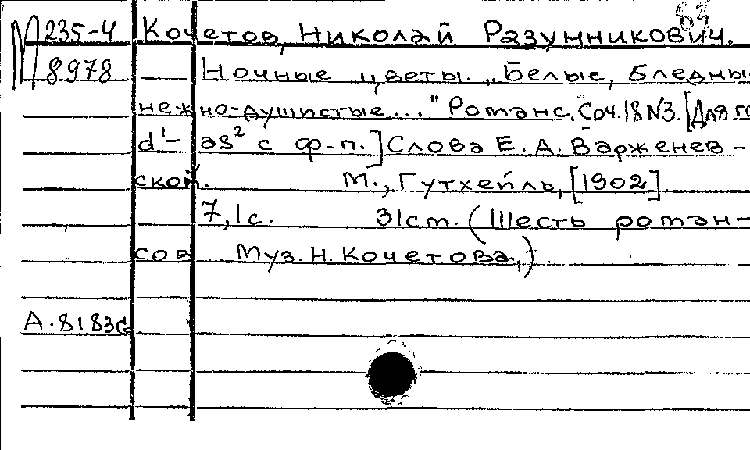 М 235-4 Кочетов, Николай Разумникович.
8978 — Ночные цветы. „Белые, бледны
нежно-душистые..." Романс. Соч. 18 N3. [Для г
d¹ - as² с ф-п.] Слова Е. А. Варженев-
ской. М., Гутхейль, [1902]
7, 1с. 31см. (Шесть роман-
сов Муз. Н. Кочетова,)
А. 8183